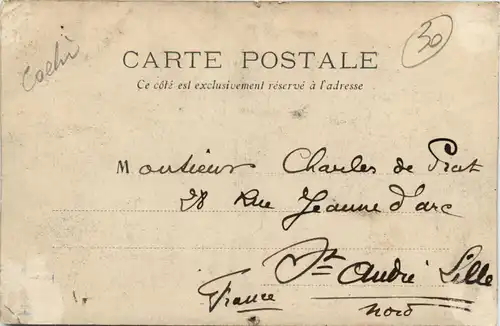 30
CARTE POSTALE
Ce côté est exclusivement réservé à l'adresse
Monsieur Charles de Prat
28 Rue Jeanne d'arc
St André Lille
France
Nord